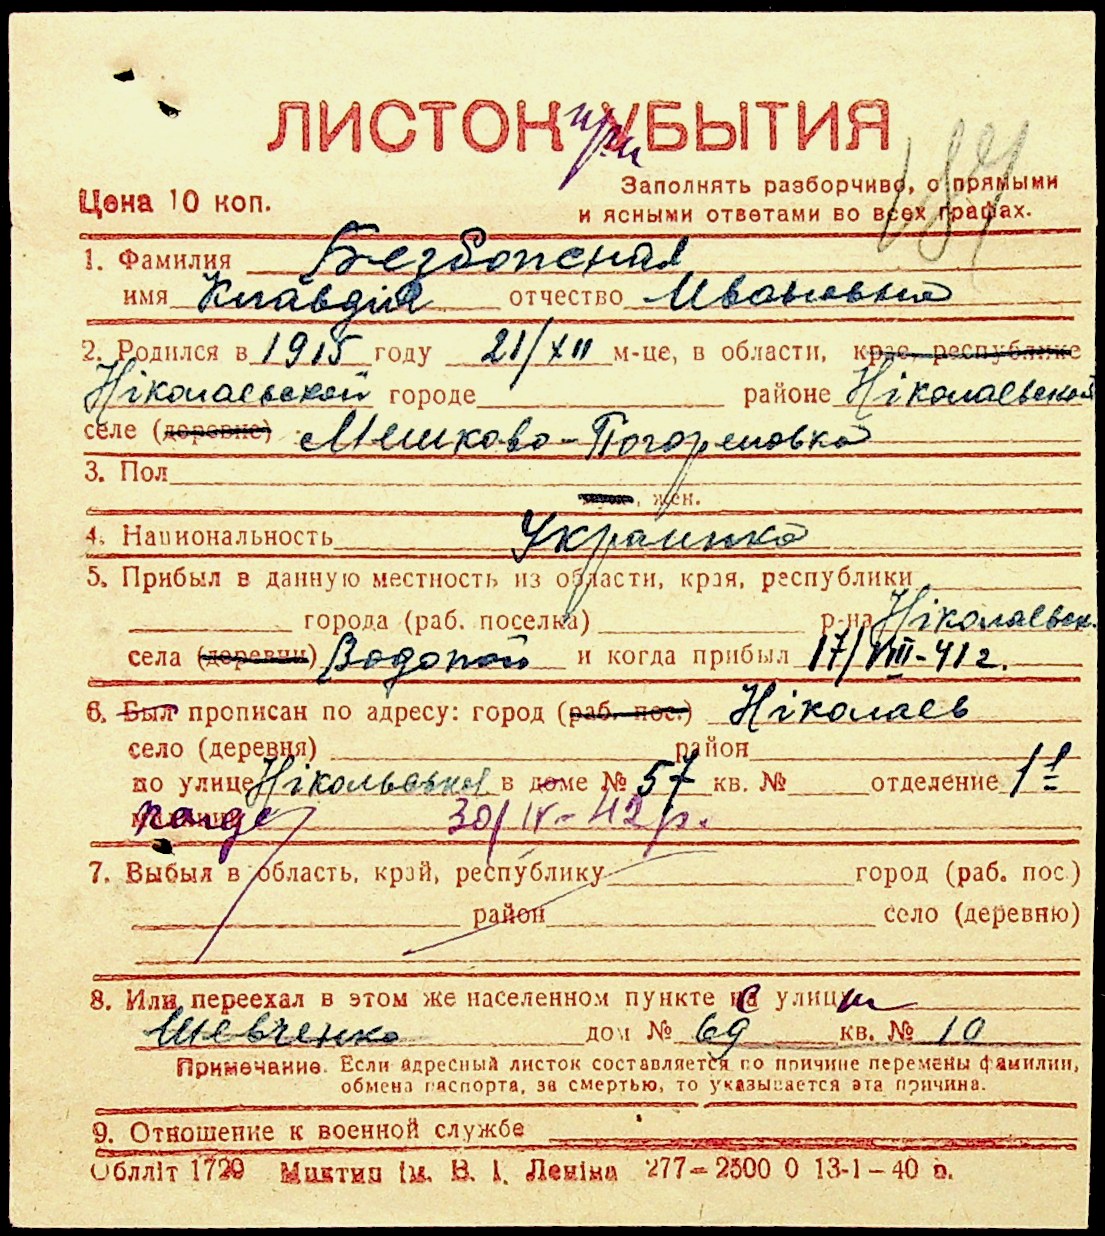 ЛИСТОК при УБЫТИЯ
Цена 10 коп.
Заполнять разборчиво, с прямыми
и ясными ответами во всех графах.
1. Фамилия
имя Клавдия отчество Ивановна
2. Родился в 1915 году 21/XII м-це, в области, крае, республике
Ніколаевской городе районе Ніколаевской
селе (деревне) Мешково-Погореловка
3. Пол
жен.
4. Национальность Украинка
5. Прибыл в данную местность из области, края, республики
города (раб. поселка) р-на Ніколаевск.
села (деревни) Водопой и когда прибыл 17/VIII-41 г.
6. Был прописан по адресу: город (раб. пос.) Ніколаев
село (деревня) район
по улице Нікольська в доме № 57 кв. № отделение 1
30/IV-42 р.
7. Выбыл в область, край, республику город (раб. пос.)
район село (деревню)
8. Или переехал в этом же населенном пункте с улицы
Шевченко дом № 69 кв. № 10
Примечание. Если адресный листок составляется по причине перемены фамилии,
обмена паспорта, за смертью, то указывается эта причина.
9. Отношение к военной службе
Облліт 1720 Миктип ім. В. І. Леніна 277—2500 0 13-1-40 р.